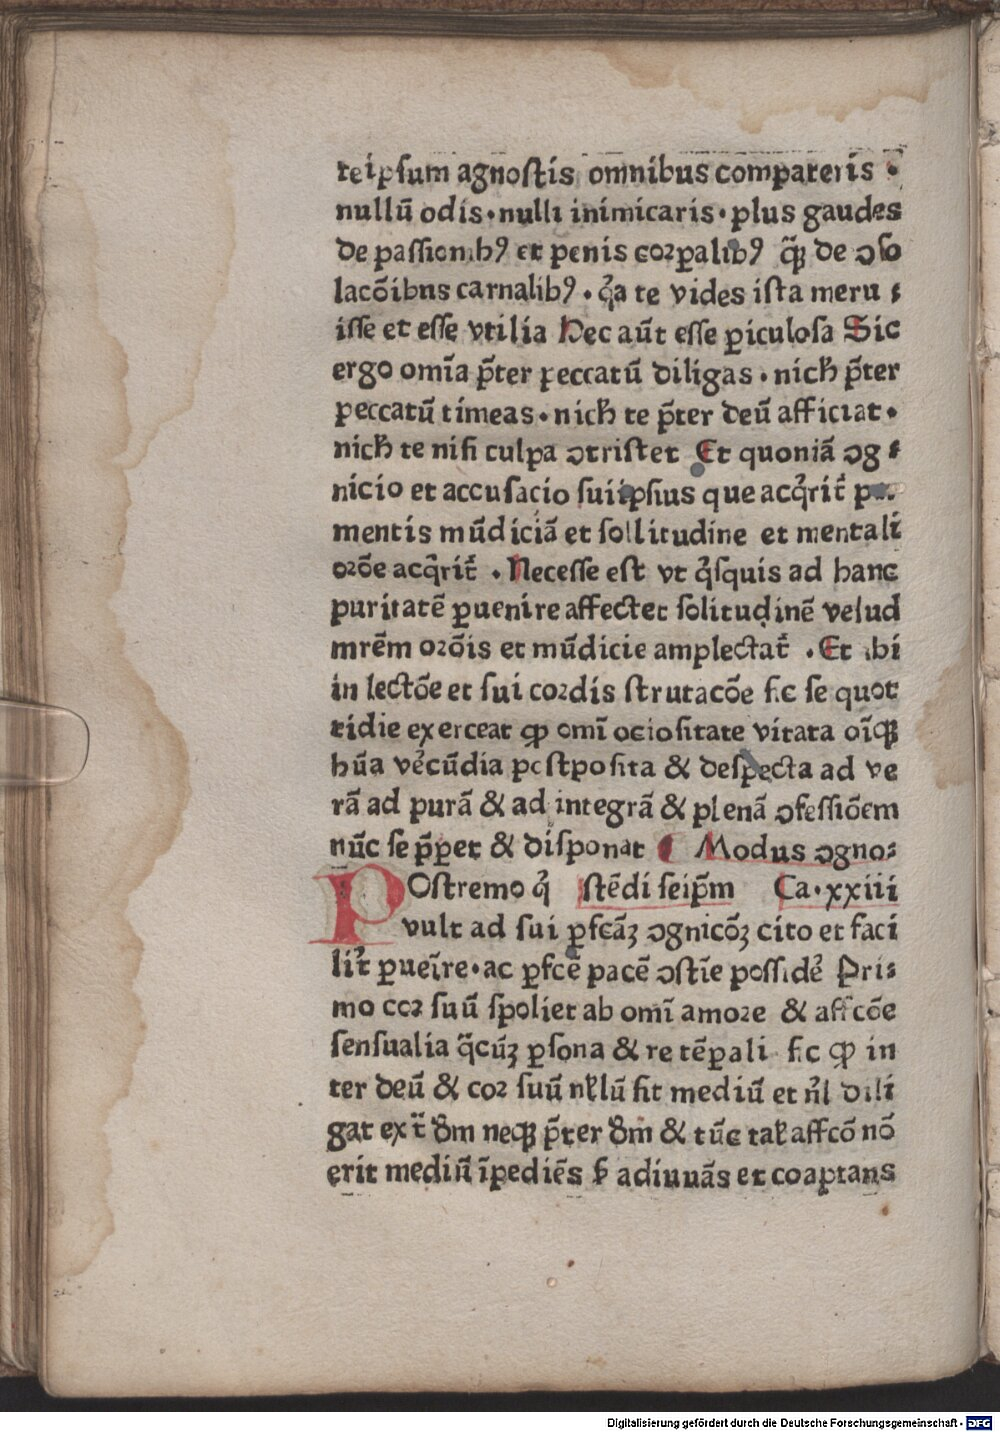 teipſum agnoſtis omnibus compateris ·
nullū odis · nulli inimicaris · plus gaudes
de paſſionibꝰ et penis corꝑalibꝰ q̄ꝫ de ↄſo
lacōibus carnalibꝰ · q̓a te vides iſta meru ⸗
iſſe et eſſe vtilia Hec aūt eſſe ꝑiculoſa Sic
ergo omīa p̄ter peccatū diligas · nicħ p̄ter
peccatū timeas · nicħ te p̄ter deū afficiat ·
nicħ te niſi culpa ↄtriſtet Et quoniā ↄg ⸗
nicio et accuſacio ſuiipſius que acq̓rit̄
mentis mūdiciā et ſollitudine et mentali
orōe acq̓rit̄ · Neceſſe eſt vt q̓ſquis ad hanc
puritatē ꝑuenire affectet ſolitudinē velud
mrēm orōis et mūdicie amplectat̄ · Et ibi
in lectōe et ſui cordis ſtrutacōe ſic ſe quot
tidie exerceat ꝙ omī ocioſitate vitata oīqꝫ
hūa ve̓cūdia poſtpoſita & deſpecta ad ve
rā ad purā & ad integrā & plenā ↄfeſſiōem
nūc ſe p̄ꝑet & diſponat ¶ Modus ↄgno⸗
POſtremo q̓ ſtēdi ſeip̄m Ca · xxiii
vult ad ſui ꝑfcāꝫ ↄgnicōꝫ cito et faci
lit̓ ꝑueīre · ac ꝑfcē pacē ↄſtīe poſſide̓ Pri⸗
mo cor ſuū ſpoliet ab omī amore & affcōe
ſenſualia q̄cūꝫ ꝑſona & re tēꝑali ſic ꝙ in
ter deū & cor ſuū nłlū ſit mediū et n̓l dili
gat ext̄ dm̄ neqꝫ p̄ter dm̄ & tūc tał affcō nō
erit mediū īpediēs ſꝫ adiuuās et coaptans
Digitalisierung gefördert durch die Deutsche Forschungsgemeinschaft · DFG